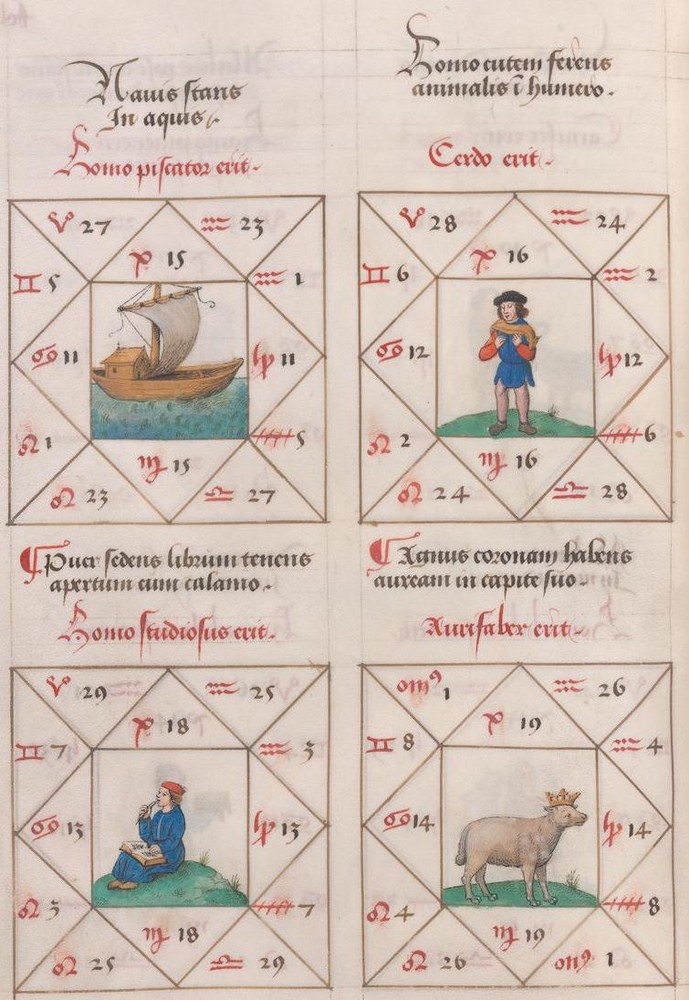 Nauis stans
In aquis.
Homo piscator erit.
♈ 27 ♒ 23
♓ 15
♊ 5 ♒ 1
♋ 11 ♑ 11
♌ 1 ♐ 5
♍ 15
♌ 23 ♎ 27
Homo cutem ferens
animalis ī humero.
Cerdo erit.
♈ 28 ♒ 24
♓ 16
♊ 6 ♒ 2
♋ 12 ♑ 12
♌ 2 ♐ 6
♍ 16
♌ 24 ♎ 28
¶ Puer sedens librum tenens
apertum cum calamo.
Homo studiosus erit.
♈ 29 ♒ 25
♓ 18
♊ 7 ♒ 3
♋ 13 ♑ 13
♌ 3 ♐ 7
♍ 18
♌ 25 ♎ 29
¶ Agnus coronam habens
auream in capite suo.
Aurifaber erit
omꝰ 1 ♒ 26
♓ 19
♊ 8 ♒ 4
♋ 14 ♑ 14
♌ 4 ♐ 8
♍ 19
♌ 26 omꝰ 1